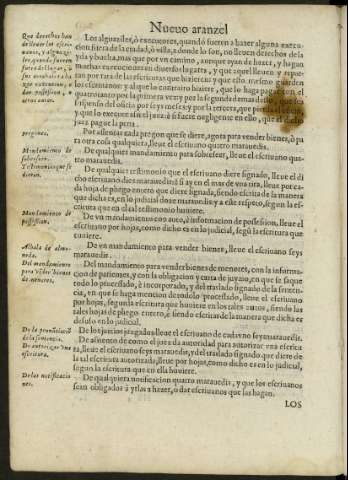 Nueuo aranzel
Que derechos han
de lleuar los escri-
uanos, y alguazi-
les, quando fueren
fuera del lugar, a
hazer
execucion, o
dar possession, o
otros autos.
Los alguaziles, o executores, quando fueren a hazer alguna execu-
cion fuera de la ciudad, o villa, a donde lo son, no lleuen derechos de la
yda y buelta, mas que por vn camino, aunque ayan de hazer, y hagan
muchas execuciones en diuersos lugares, y que aquel lleuen y repar-
tan por rata de las escrituras que hizieren: y que esto mesmo guarden
los escriuanos: y al que lo contrario hiziere, que lo haga pagar con el
quatro tanto por la primera vez: y por la segunda demas dello, que sea
suspenso del oficio por seys meses: y por la tercera, que
y que lo execute assi el juez: si fuere negligente en ello, que el dicho
juez pague la pena.
pregones.
Por assentar cada pregon que se diere, agora para vender bienes, o pa
ra otra cosa qualquiera, lleue el escriuano quatro marauedis.
Mandamiento de
sobreseer.
De qualquier mandamiento para sobreseer, lleue el escriuano qua-
tro marauedis.
Testimonio que se
diere
De qualquier testimonio que el escriuano diere signado, lleue el di
cho escriuano doze marauedis: si ay en el mar de vna tira, lleue por ca-
da hoja de pliego entero que diere signada, siendo escrita de la manera
que dicha es, en lo judicial doze marauedis: y a este respeto, segun la es-
critura que en el tal testimonio huuiere.
Mandamiento de
possession.
De vn mandamiento con auto, o informacion de possession, lleue el
escriuano por hojas, como dicho es en lo judicial, segun la escritura que
tuuiere.
Albala de almo-
neda.
De vn mandamiento para vender bienes, lleue el escriuano seys
marauedis.
Del mandamiento
para vender bienes
de menores.
Del mandamiento para vender bienes de menores, con la informa-
cion de parientes, y con la obligacion y cura de juyzio, en que se saque
todo lo processado, è incorporado, y del traslado signado de la senten-
cia, en que se haga mencion de todo lo processado, lleue el escriuano
por hojas, segun la escritura que huuiere en los tales autos, siendo las
tales hojas de pliego entero, è siendo escritas de la manera que dicha es
de suso en lo judicial.
De la pronunciació
de la sentencia.
De los juezios juzgados lleue el escriuano de cada vno seys marauedis.
De autorizar vna
escritura.
De assiento de como el juez da autoridad para autorizar vna escritu
ra, lleue el escriuano seys marauedis, y del traslado signado que diere de
la tal escritura autorizada, lleue por hojas, como dicho es en lo judicial,
segun la escritura que en ella huuiere.
De las notificacio
nes.
De qualquiera notificacion quatro marauedis, y que los escriuanos
sean obligados à yrlas à hazer, o dar escriuanos que las hagan.
LOS